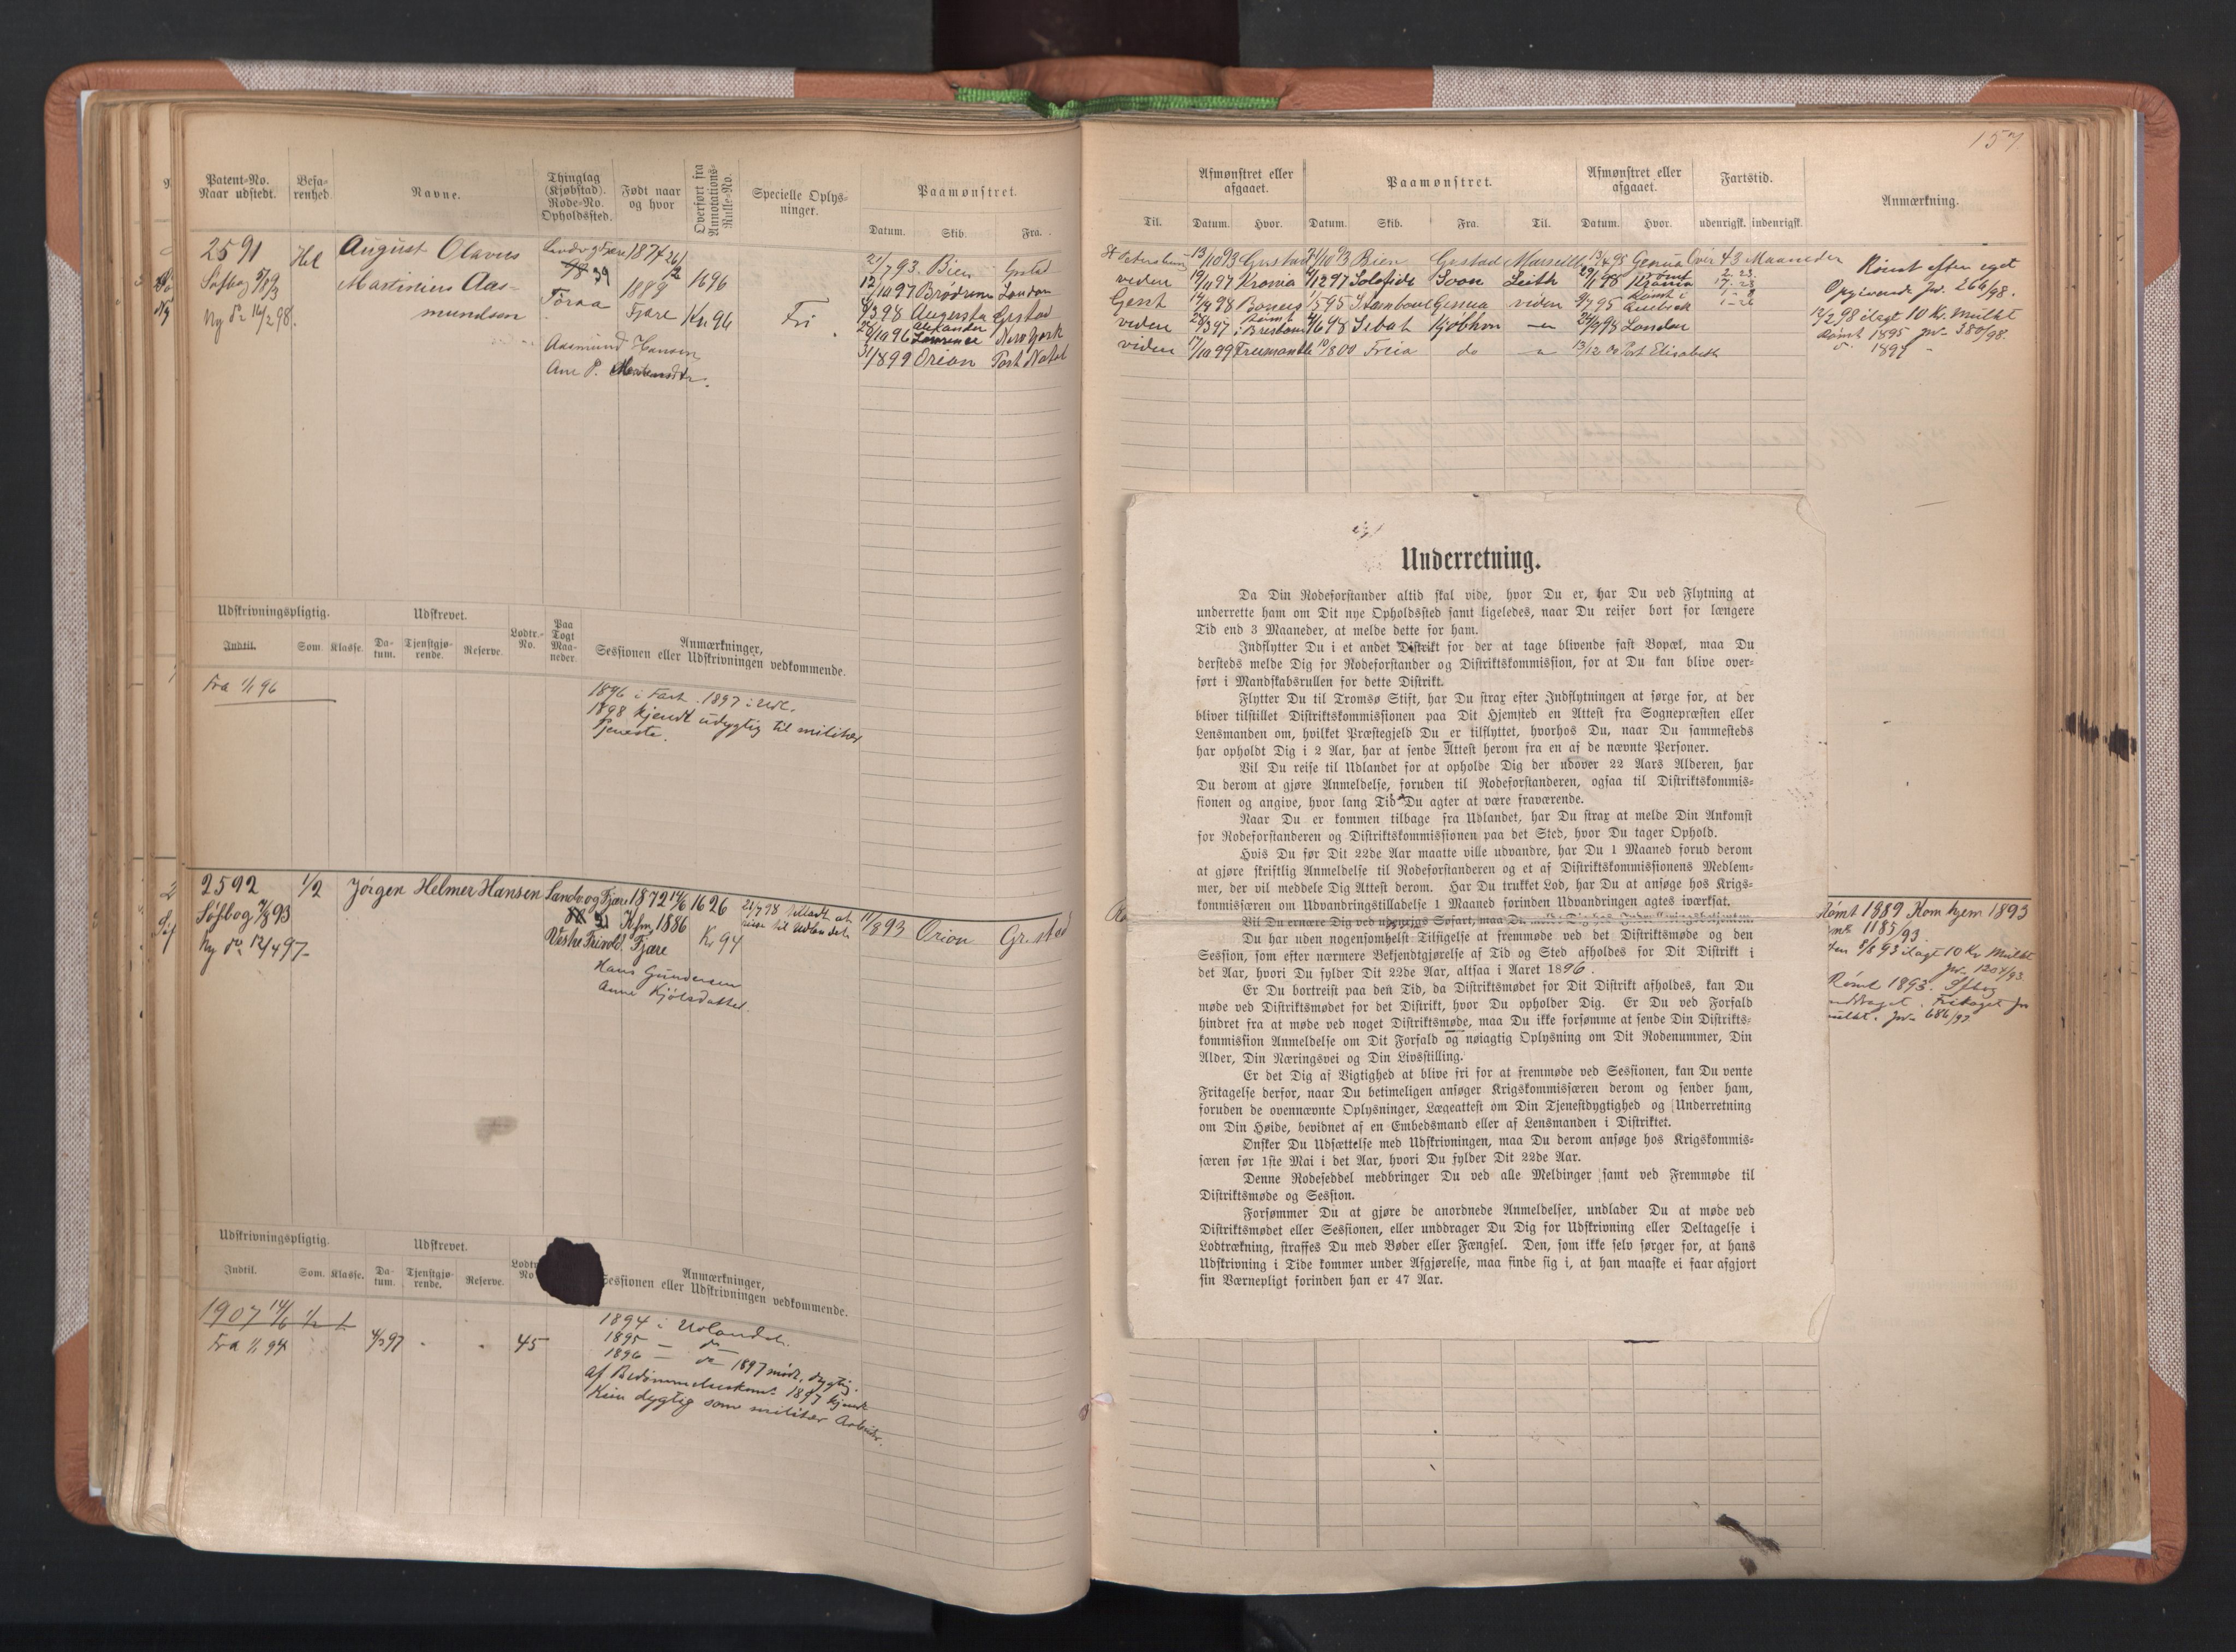 157
Patent-No.
Naar udstedt.
Befarenhed.
Navne.
Thinglag
(Kjøbstad).
Rode-No.
Opholdssted.
Født naar
og hvor
Overført fra
Annotations-
Rulle-No.
Specielle Oplys-
ninger.
Paamønstret.
Datum. Skib. Fra.
2591
Søfbog
Ny
August Olavus
Martinius Aas-
mundsen
1874
1889
Fjære
1696
Fri
Aasmund Hansen
Ane P.
21/7 93. Bien Grstad
Brødrene London
98 Augusta Grstad
Alexander
96 Lawrence New York
31/8 99 Orion Port Natal
Udskrivningspligtig.
Udskrevet.
Indtil. Som. Klasse. Da-
tum. Tjenstgjø-
rende. Reserve. Lodtr.-
No. Paa
Togt
Maa-
neder.
Anmærkninger,
Sessionen eller Udskrivningen vedkommende.
Fra 1/1 96
1896 i Fart. 1897 i Udl.
1898 kjendt udygtig til militær
Tjeneste.
2592
Søfbog 7/8 93
Ny do 12/4 97
1/2
Jörgen Helmer Hansen
Landv. og Fjære 1872 14/6 1626
Kfm, 1886
Vestre Frivold Fjære
Kr 94
Hans Gundersen
Anne Kjölsdatter.
11/8 93 Orion Gr.stad
Udskrivningspligtig.
Udskrevet.
Indtil. Som. Klasse. Da-
tum. Tjenstgjø-
rende. Reserve.
Anmærkninger,
Sessionen eller Udskrivningen vedkommende.
1907 14/6 1/2 1.
Fra 1/1 94
4/3 97
45
1894 i Udlandet.
1895 — do
1896 — do 1897 mødt, dygtig.
af Bedømmelseskom. 1897 kjendt
Kun dygtig som militær Arbeider.
Til.
Afmønstret eller
afgaaet.
Datum. Hvor.
Paamønstret.
Datum. Skib. Fra. Til.
Afmønstret eller
afgaaet.
Datum. Hvor.
Fartstid.
udenrigsk. indenrigsk.
Anmærkning.
Bien Grstad Marseille Genua Over 43 Maaneder
viden Kronia Solglidt Soon Leith
Gent Stamboul Genua viden
viden Sebah Kjøbhvn London
viden Freemantle Freia do Port Elisabeth
Rømt efter eget
Opgivende Jr. 266/98.
12/2 98 ilagt 10 Kr. Mulkt
Rømt 1895 Jr. 380/98.
1897
Underretning.
Da Din Rodeforstander altid skal vide, hvor Du er, har Du ved Flytning at
underrette ham om Dit nye Opholdssted samt ligeledes, naar Du reiser bort for længere
Tid end 3 Maaneder, at melde dette for ham.
Indflytter Du i et andet Distrikt for der at tage blivende fast Bopæl, maa Du
dersteds melde Dig for Rodeforstander og Distriktskommission, for at Du kan blive over-
ført i Mandskabsrullen for dette Distrikt.
Flytter Du til Tromsø Stift, har Du strax efter Indflytningen at sørge for, at der
bliver tilstillet Distriktskommissionen paa Dit Hjemsted en Attest fra Sognepræsten eller
Lensmanden om, hvilket Præstegjeld Du er tilflyttet, hvorhos Du, naar Du sammesteds
har opholdt Dig i 2 Aar, har at sende Attest herom fra en af de nævnte Personer.
Vil Du reise til Udlandet for at opholde Dig der udover 22 Aars Alderen, har
Du derom at gjøre Anmeldelse, foruden til Rodeforstanderen, ogsaa til Distriktskommis-
sionen og angive, hvor lang Tid Du agter at være fraværende.
Naar Du er kommen tilbage fra Udlandet, har Du strax at melde Din Ankomst
for Rodeforstanderen og Distriktskommissionen paa det Sted, hvor Du tager Ophold.
Hvis Du før Dit 22de Aar maatte ville udvandre, har Du 1 Maaned forud derom
at gjøre skriftlig Anmeldelse til Rodeforstanderen og et af Distriktskommissionens Medlem-
mer, der vil meddele Dig Attest derom. Har Du trukket Lod, har Du at ansøge hos Krigs-
kommissæren om Udvandringstilladelse 1 Maaned forinden Udvandringen agtes iværksat.
Vil Du ernære Dig ved udenrigs Søfart, maa Du
Du har uden nogensomhelst Tilsigelse at fremmøde ved det Distriktsmøde og den
Session, som efter nærmere Bekjendtgjørelse af Tid og Sted afholdes for Dit Distrikt i
det Aar, hvori Du fylder Dit 22de Aar, altsaa i Aaret 1896.
Er Du bortreist paa den Tid, da Distriktsmødet for Dit Distrikt afholdes, kan Du
møde ved Distriktsmødet for det Distrikt, hvor Du opholder Dig. Er Du ved Forfald
hindret fra at møde ved noget Distriktsmøde, maa Du ikke forsømme at sende Din Distrikts-
kommission Anmeldelse om Dit Forfald og nøiagtig Oplysning om Dit Rodenummer, Din
Alder, Din Næringsvei og Din Livsstilling.
Er det Dig af Vigtighed at blive fri for at fremmøde ved Sessionen, kan Du vente
Fritagelse derfor, naar Du betimeligen ansøger Krigskommissæren derom og sender ham,
foruden de ovennævnte Oplysninger, Lægeattest om Din Tjenestdygtighed og Underretning
om Din Høide, bevidnet af en Embedsmand eller af Lensmanden i Distriktet.
Ønsker Du Udsættelse med Udskrivningen, maa Du derom ansøge hos Krigskommis-
særen før 1ste Mai i det Aar, hvori Du fylder Dit 22de Aar.
Denne Rodeseddel medbringer Du ved alle Meldinger samt ved Fremmøde til
Distriktsmøde og Session.
Forsømmer Du at gjøre de anordnede Anmeldelser, undlader Du at møde ved
Distriktsmødet eller Sessionen, eller unddrager Du Dig for Udskrivning eller Deltagelse i
Lodtrækning, straffes Du med Bøder eller Fængsel. Den, som ikke selv sørger for, at hans
Udskrivning i Tide kommer under Afgjørelse, maa finde sig i, at han maaske ei faar afgjort
sin Værnepligt forinden han er 47 Aar.
Rømt 1889 Kom hjem 1893
1185/93
8/8 93 ilagt 10 Kr Mulkt
Jr. 1204/93
Rømt 1893. Sfbog
Fritaget for
Jr. 686/97.